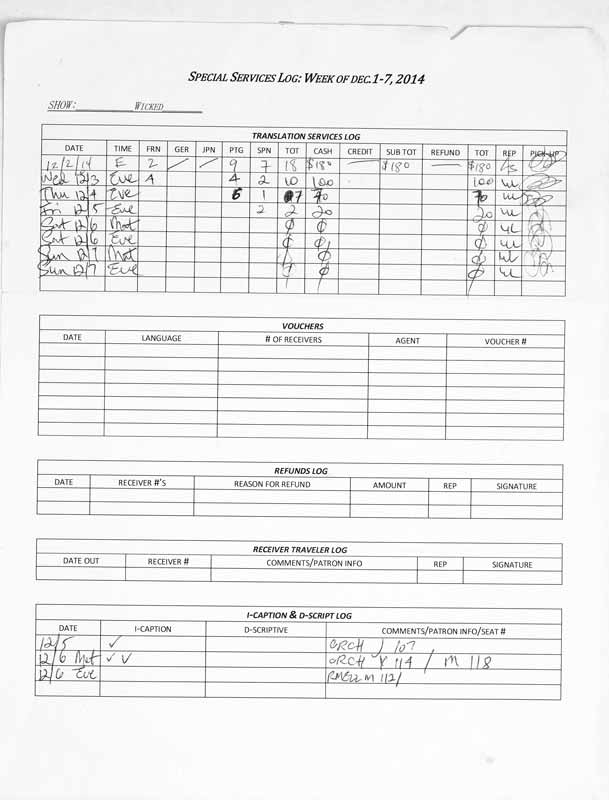 SPECIAL SERVICES LOG: WEEK OF DEC.1-7, 2014
SHOW: WICKED
TRANSLATION SERVICES LOG
DATE TIME FRN GER JPN PTG SPN TOT CASH CREDIT SUB TOT REFUND TOT REP PICK-UP
12/2/14 E 2 / / 9 7 18 $180 — $180 — $180
Wed 12/3 Eve 4 4 2 10 100 100
Thu 12/4 Eve 6 1 7 70 70
Fri 12/5 Eve 2 2 20 20
Sat 12/6 Mat ϕ ϕ ϕ
Sat 12/6 Eve ϕ ϕ ϕ
Sun 12/7 Mat ϕ ϕ ϕ
Sun 12/7 Eve ϕ ϕ ϕ
VOUCHERS
DATE LANGUAGE # OF RECEIVERS AGENT VOUCHER #
REFUNDS LOG
DATE RECEIVER #'S REASON FOR REFUND AMOUNT REP SIGNATURE
RECEIVER TRAVELER LOG
DATE OUT RECEIVER # COMMENTS/PATRON INFO REP SIGNATURE
I-CAPTION & D-SCRIPT LOG
DATE I-CAPTION D-SCRIPTIVE COMMENTS/PATRON INFO/SEAT #
12/5 ✓ ORCH J 107
12/6 Mat ✓ ✓ ORCH 114 / M 118
12/6 Eve M 112/